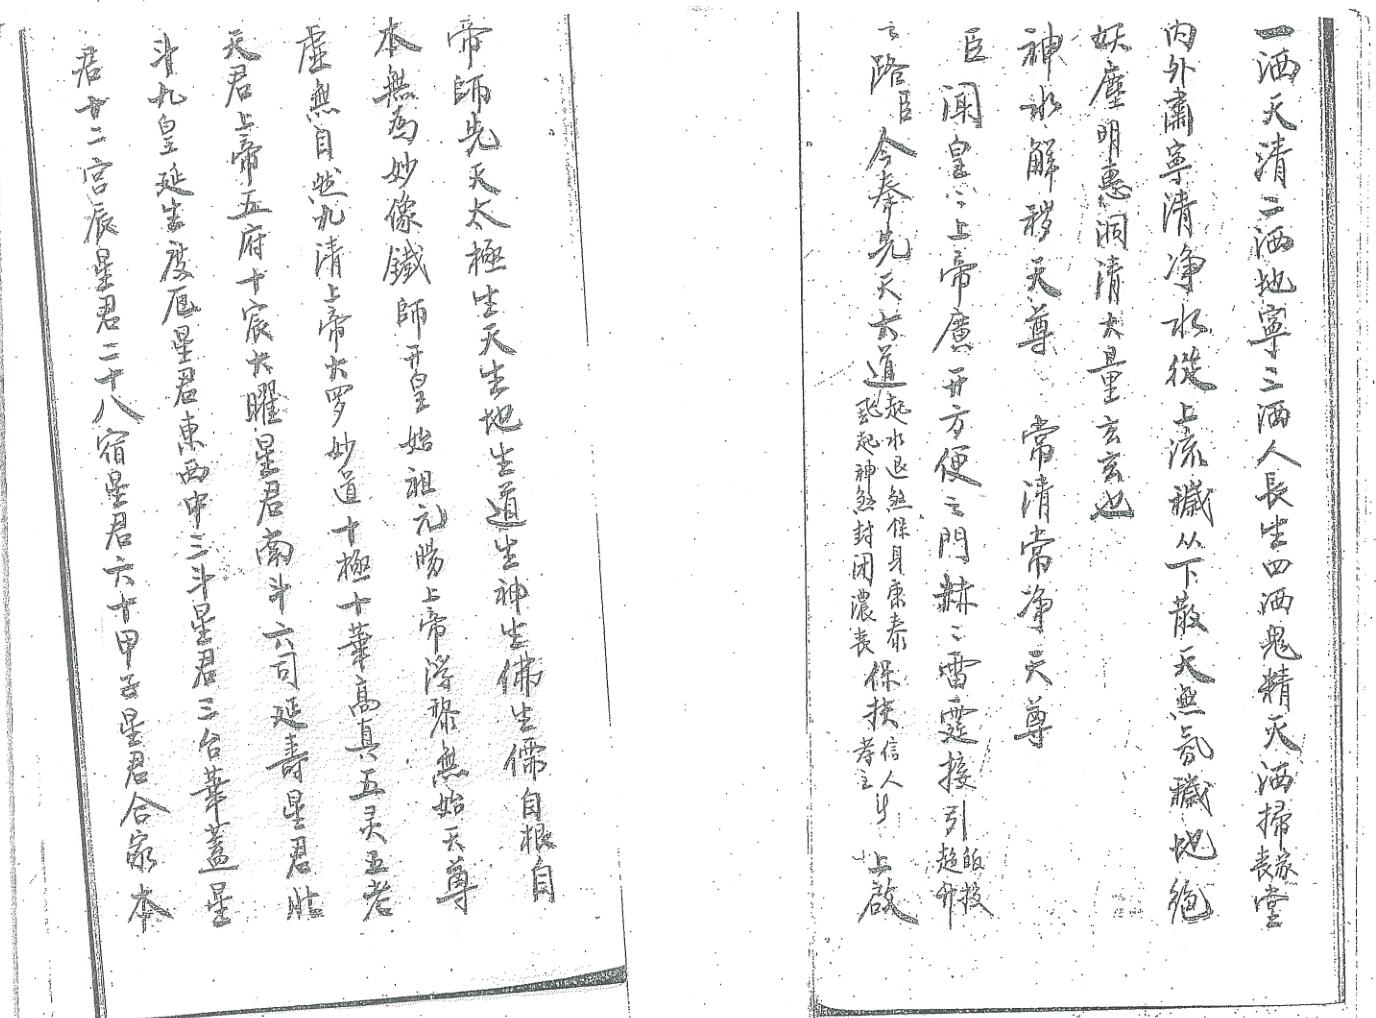 一洒天清二洒地寧三洒人長生四洒鬼精灭洒掃家喪堂
内外肅寧清净水從上流穢从下散天無氛穢地绝
妖塵明惠洞清大量玄玄也
神水解秽天尊　常清常净天尊
臣闻皇〻上帝廣开方便之門赫〻雷霆接引皈投超升
之路臣今奉先天大道起水退煞保身康泰起神煞封闭濃喪保扶信人孝主　上啟
帝師先天太極生天生地生道生神生佛生儒自根自
本無為妙像鐵師开皇始祖元陽上帝浮黎無始天尊
虚無自然九清上帝大罗妙道十極十華高真五灵五老
天君上帝五府十宸大曜星君南斗六司延壽星君北
斗九皇延生度厄星君東西中三斗星君三台華蓋星
君十二宫辰星君二十八宿星君六十甲子星君合家本